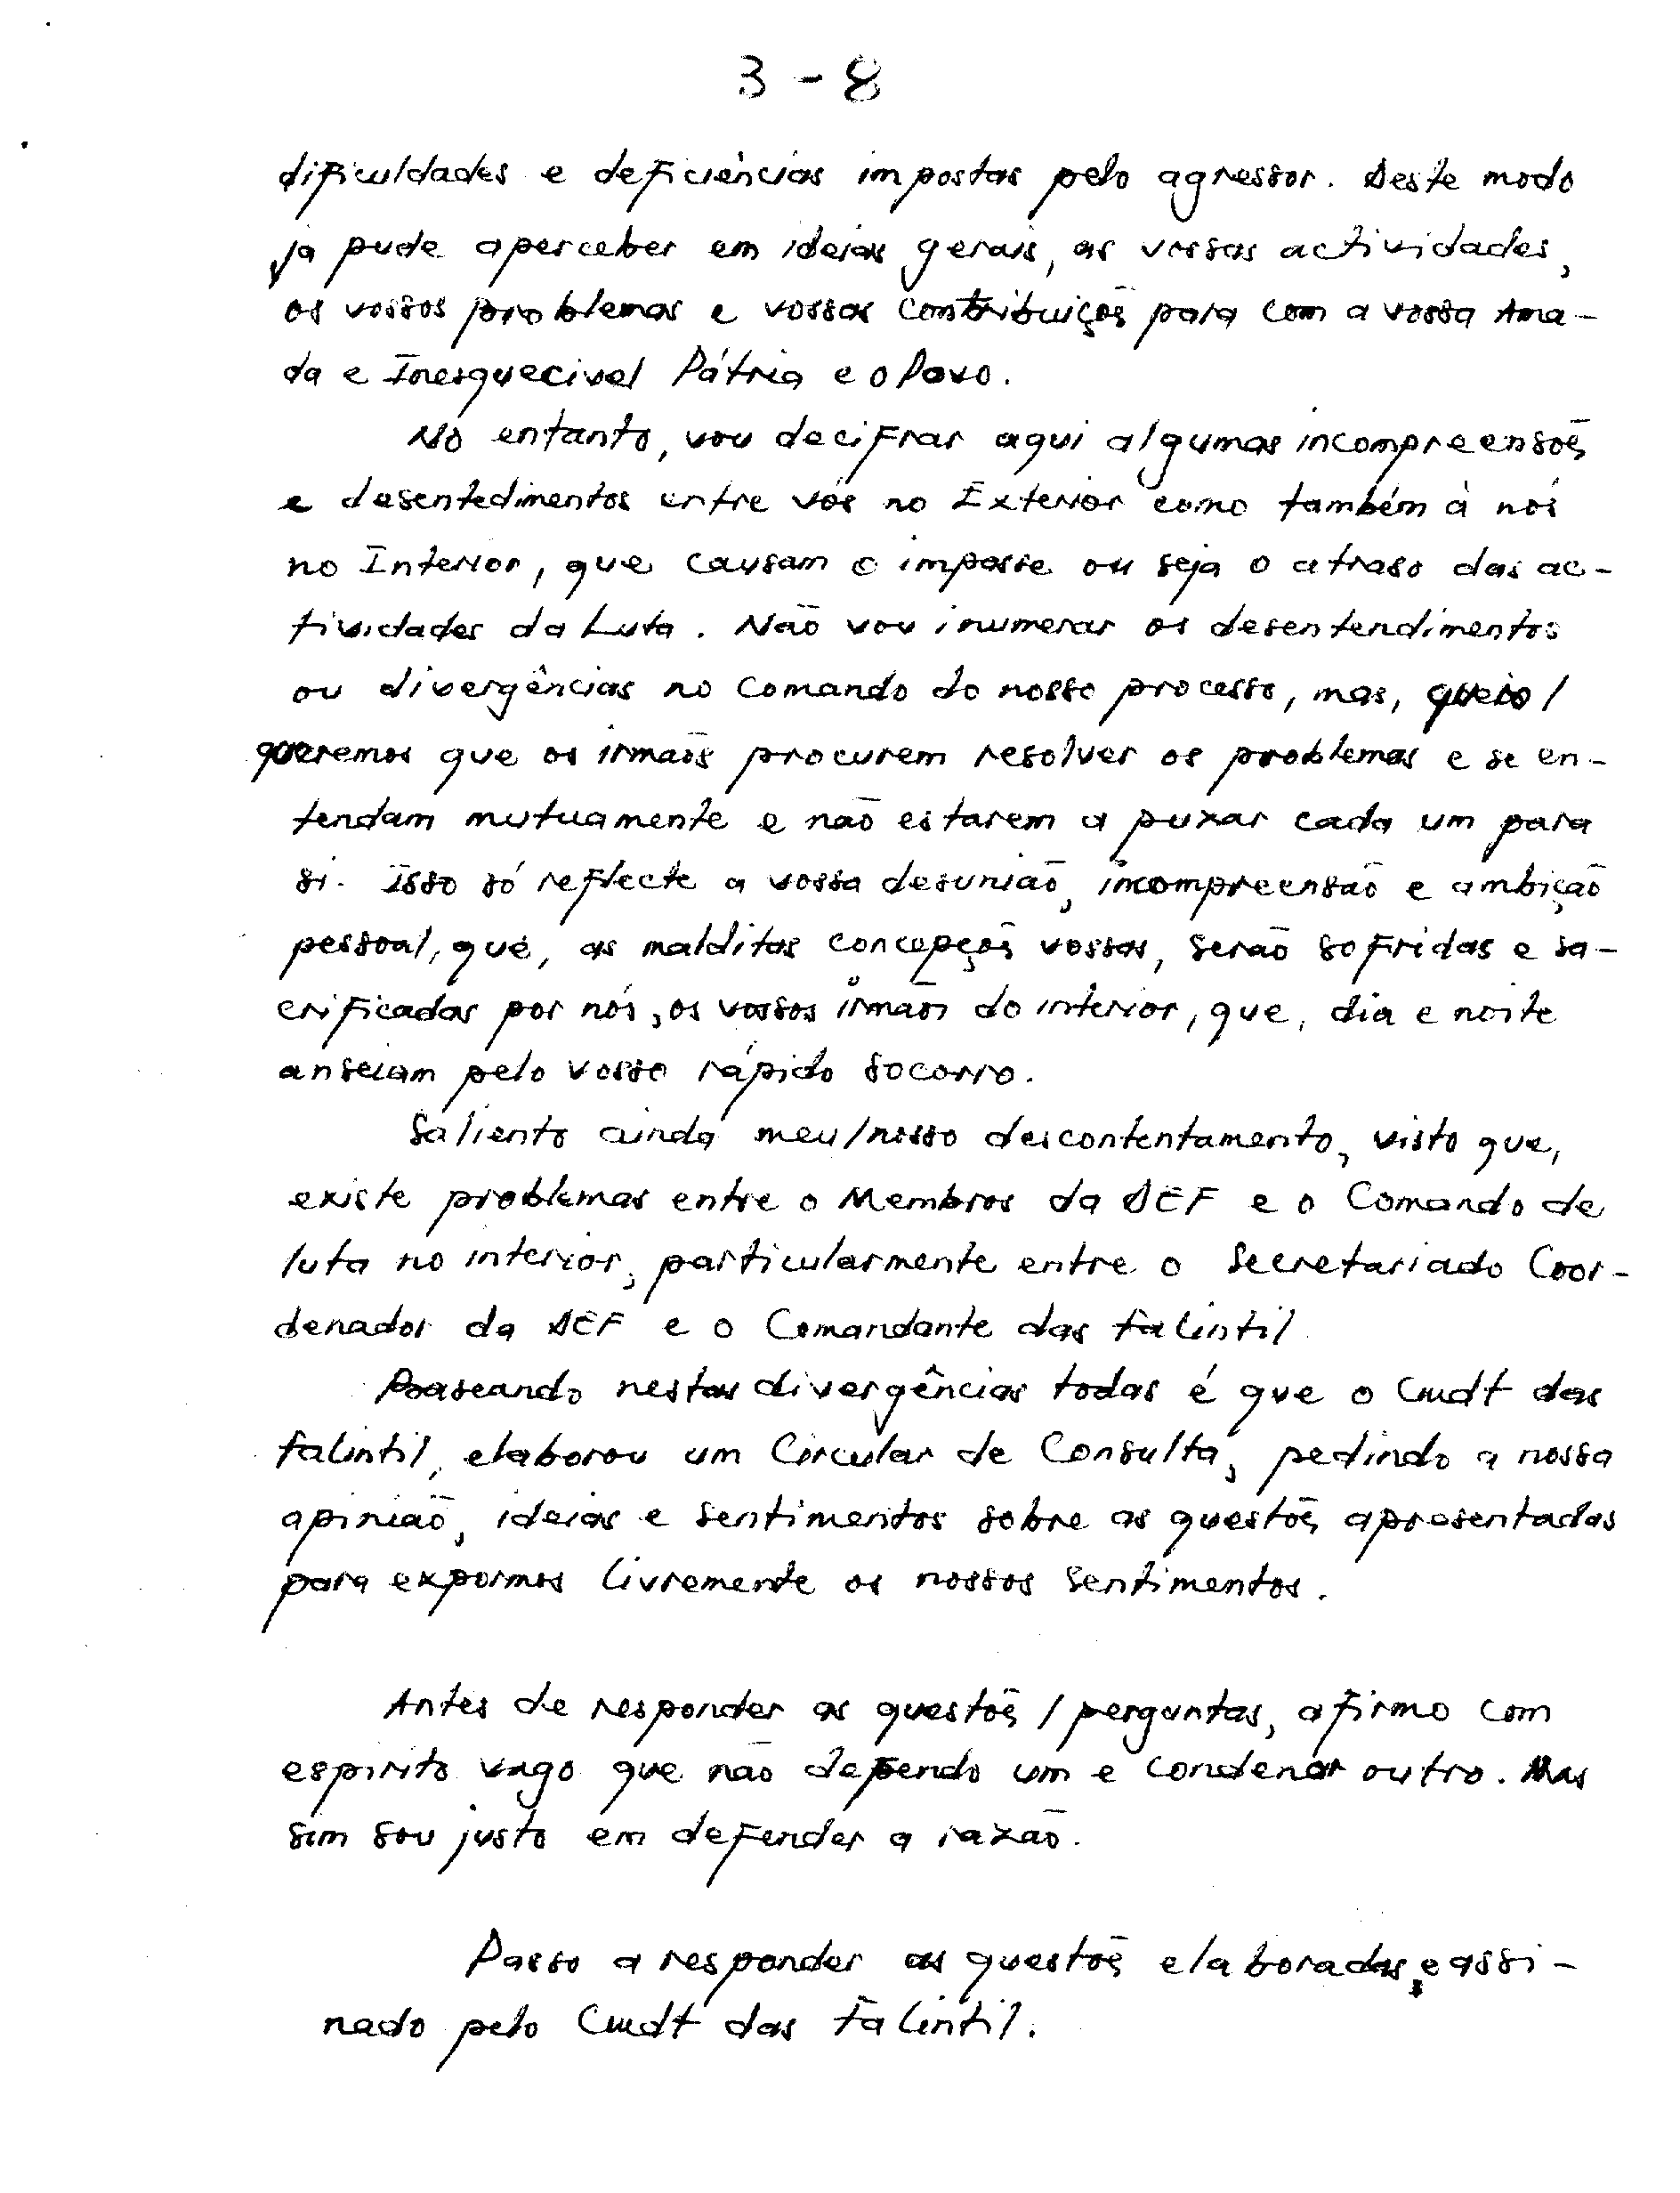 3 - 8
dificuldades e deficiências impostas pelo agressor. Deste modo
já pude aperceber em ideias gerais, as vossas actividades,
os vossos problemas e vossas contribuiçōes para com a vossa Ama-
da e Inesquecivel Pátria e o Povo.
No entanto, vou decifrar aqui algumas incompreensōes
e desentedimentos entre vós no Exterior como também à nós
no Interior, que causam o impasse ou seja o atraso das ac-
tividades da Luta. Não vou inumerar os desentendimentos
ou divergências no Comando do nosso processo, mas, queio/
queremos que os irmaōs procurem resolver os problemas e se en-
tendam mutuamente e naō estarem a puxar cada um para
si. Isso só reflecte a vossa desuniaō, incompreensaō e ambiçaō
pessoal, que, as malditas concepçoēs vossas, seraō sofridas e sa-
crificadas por nós, os vossos irmaōs do interior, que, dia e noite
anseiam pelo vosso rápido socorro.
Saliento ainda meu/nosso descontentamento, visto que,
existe problemas entre o Membros da DEF e o Comando de
luta no interior, particularmente entre o Secretariado Coor-
denador da DEF e o Comandante das Falintil
Baseando nestas divergências todas é que o Cmdt das
Falintil, elaborou um Circular de Consulta, pedindo a nossa
apiniaō, ideias e sentimentos sobre as questoēs apresentadas
para expormos livremente os nossos sentimentos.
Antes de responder as questoēs / perguntas, afirmo com
espirito vago que naō defendo um e condenar outro. Mas
sim sou justo em defender a razaō.
Passo a responder as questoēs elaboradas, e assi-
nado pelo Cmdt das Falintil.